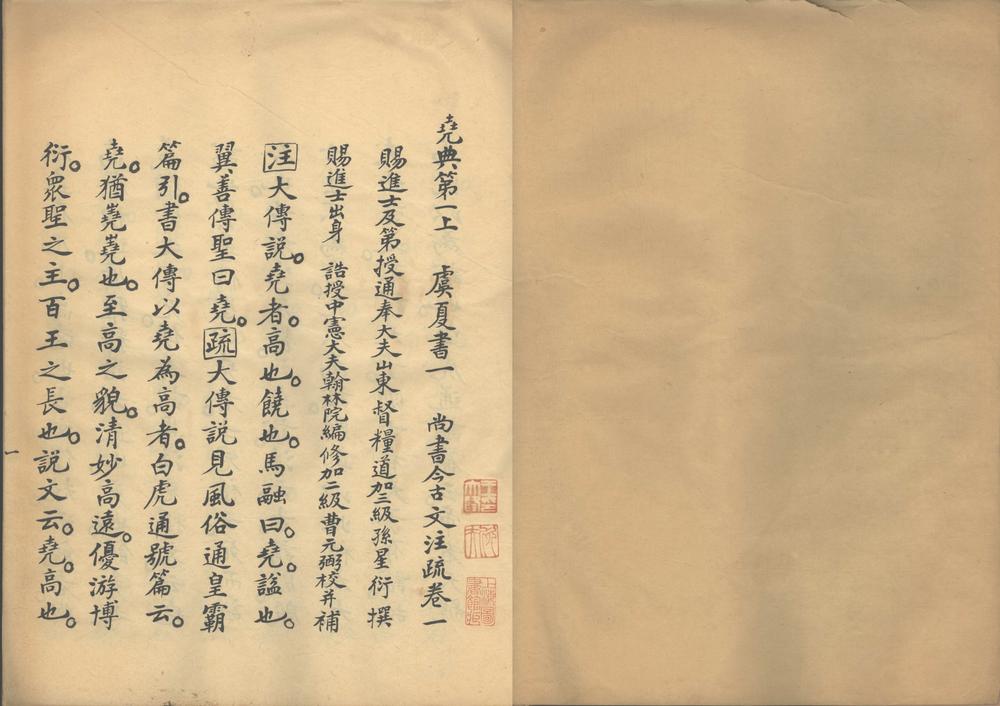 堯典第一上　虞夏書一　尚書今古文注疏卷一
賜進士及第授通奉大夫山東督糧道加三級孫星衍撰
賜進士出身　誥授中憲大夫翰林院編修加二級曹元弼校并補
注大傳說。堯者。高也。饒也。馬融曰。堯。謚也。
翼善傳聖曰堯。疏大傳說見風俗通皇霸
篇引。書大傳以堯為高者。白虎通號篇云。
堯。猶嶤嶤也。至高之貌。清妙高遠。優游博
衍。眾聖之主。百王之長也。說文云。堯。高也。
一